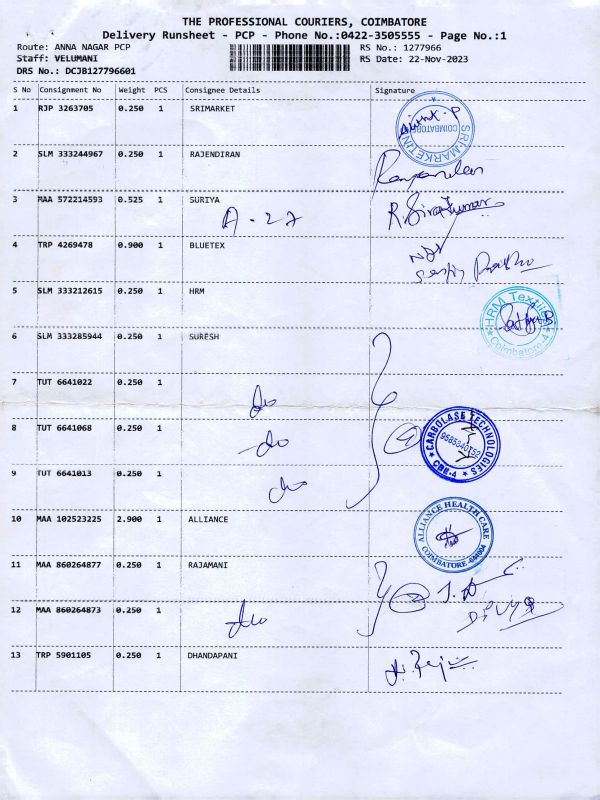 THE PROFESSIONAL COURIERS, COIMBATORE
Delivery Runsheet - PCP - Phone No.:0422-3505555 - Page No.:1
Route: ANNA NAGAR PCP RS No.: 1277966
Staff: VELUMANI RS Date: 22-Nov-2023
DRS No.: DCJB127796601
S No Consignment No Weight PCS Consignee Details Signature
1 RJP 3263705 0.250 1 SRIMARKET
SRI MARKETING COIMBATORE
2 SLM 333244967 0.250 1 RAJENDIRAN
3 MAA 572214593 0.525 1 SURIYA
A-27 R. Sivakumar
4 TRP 4269478 0.900 1 BLUETEX
5 SLM 333212615 0.250 1 HRM
HRM Textiles Coimbatore-4
6 SLM 333285944 0.250 1 SURESH
7 TUT 6641022 0.250 1
do
8 TUT 6641068 0.250 1
do
CARBOLASE TECHNOLOGIES CBE-4
9 TUT 6641013 0.250 1
do
10 MAA 102523225 2.900 1 ALLIANCE
ALLIANCE HEALTH CARE COIMBATORE
11 MAA 860264877 0.250 1 RAJAMANI
12 MAA 860264873 0.250 1
do
13 TRP 5901105 0.250 1 DHANDAPANI